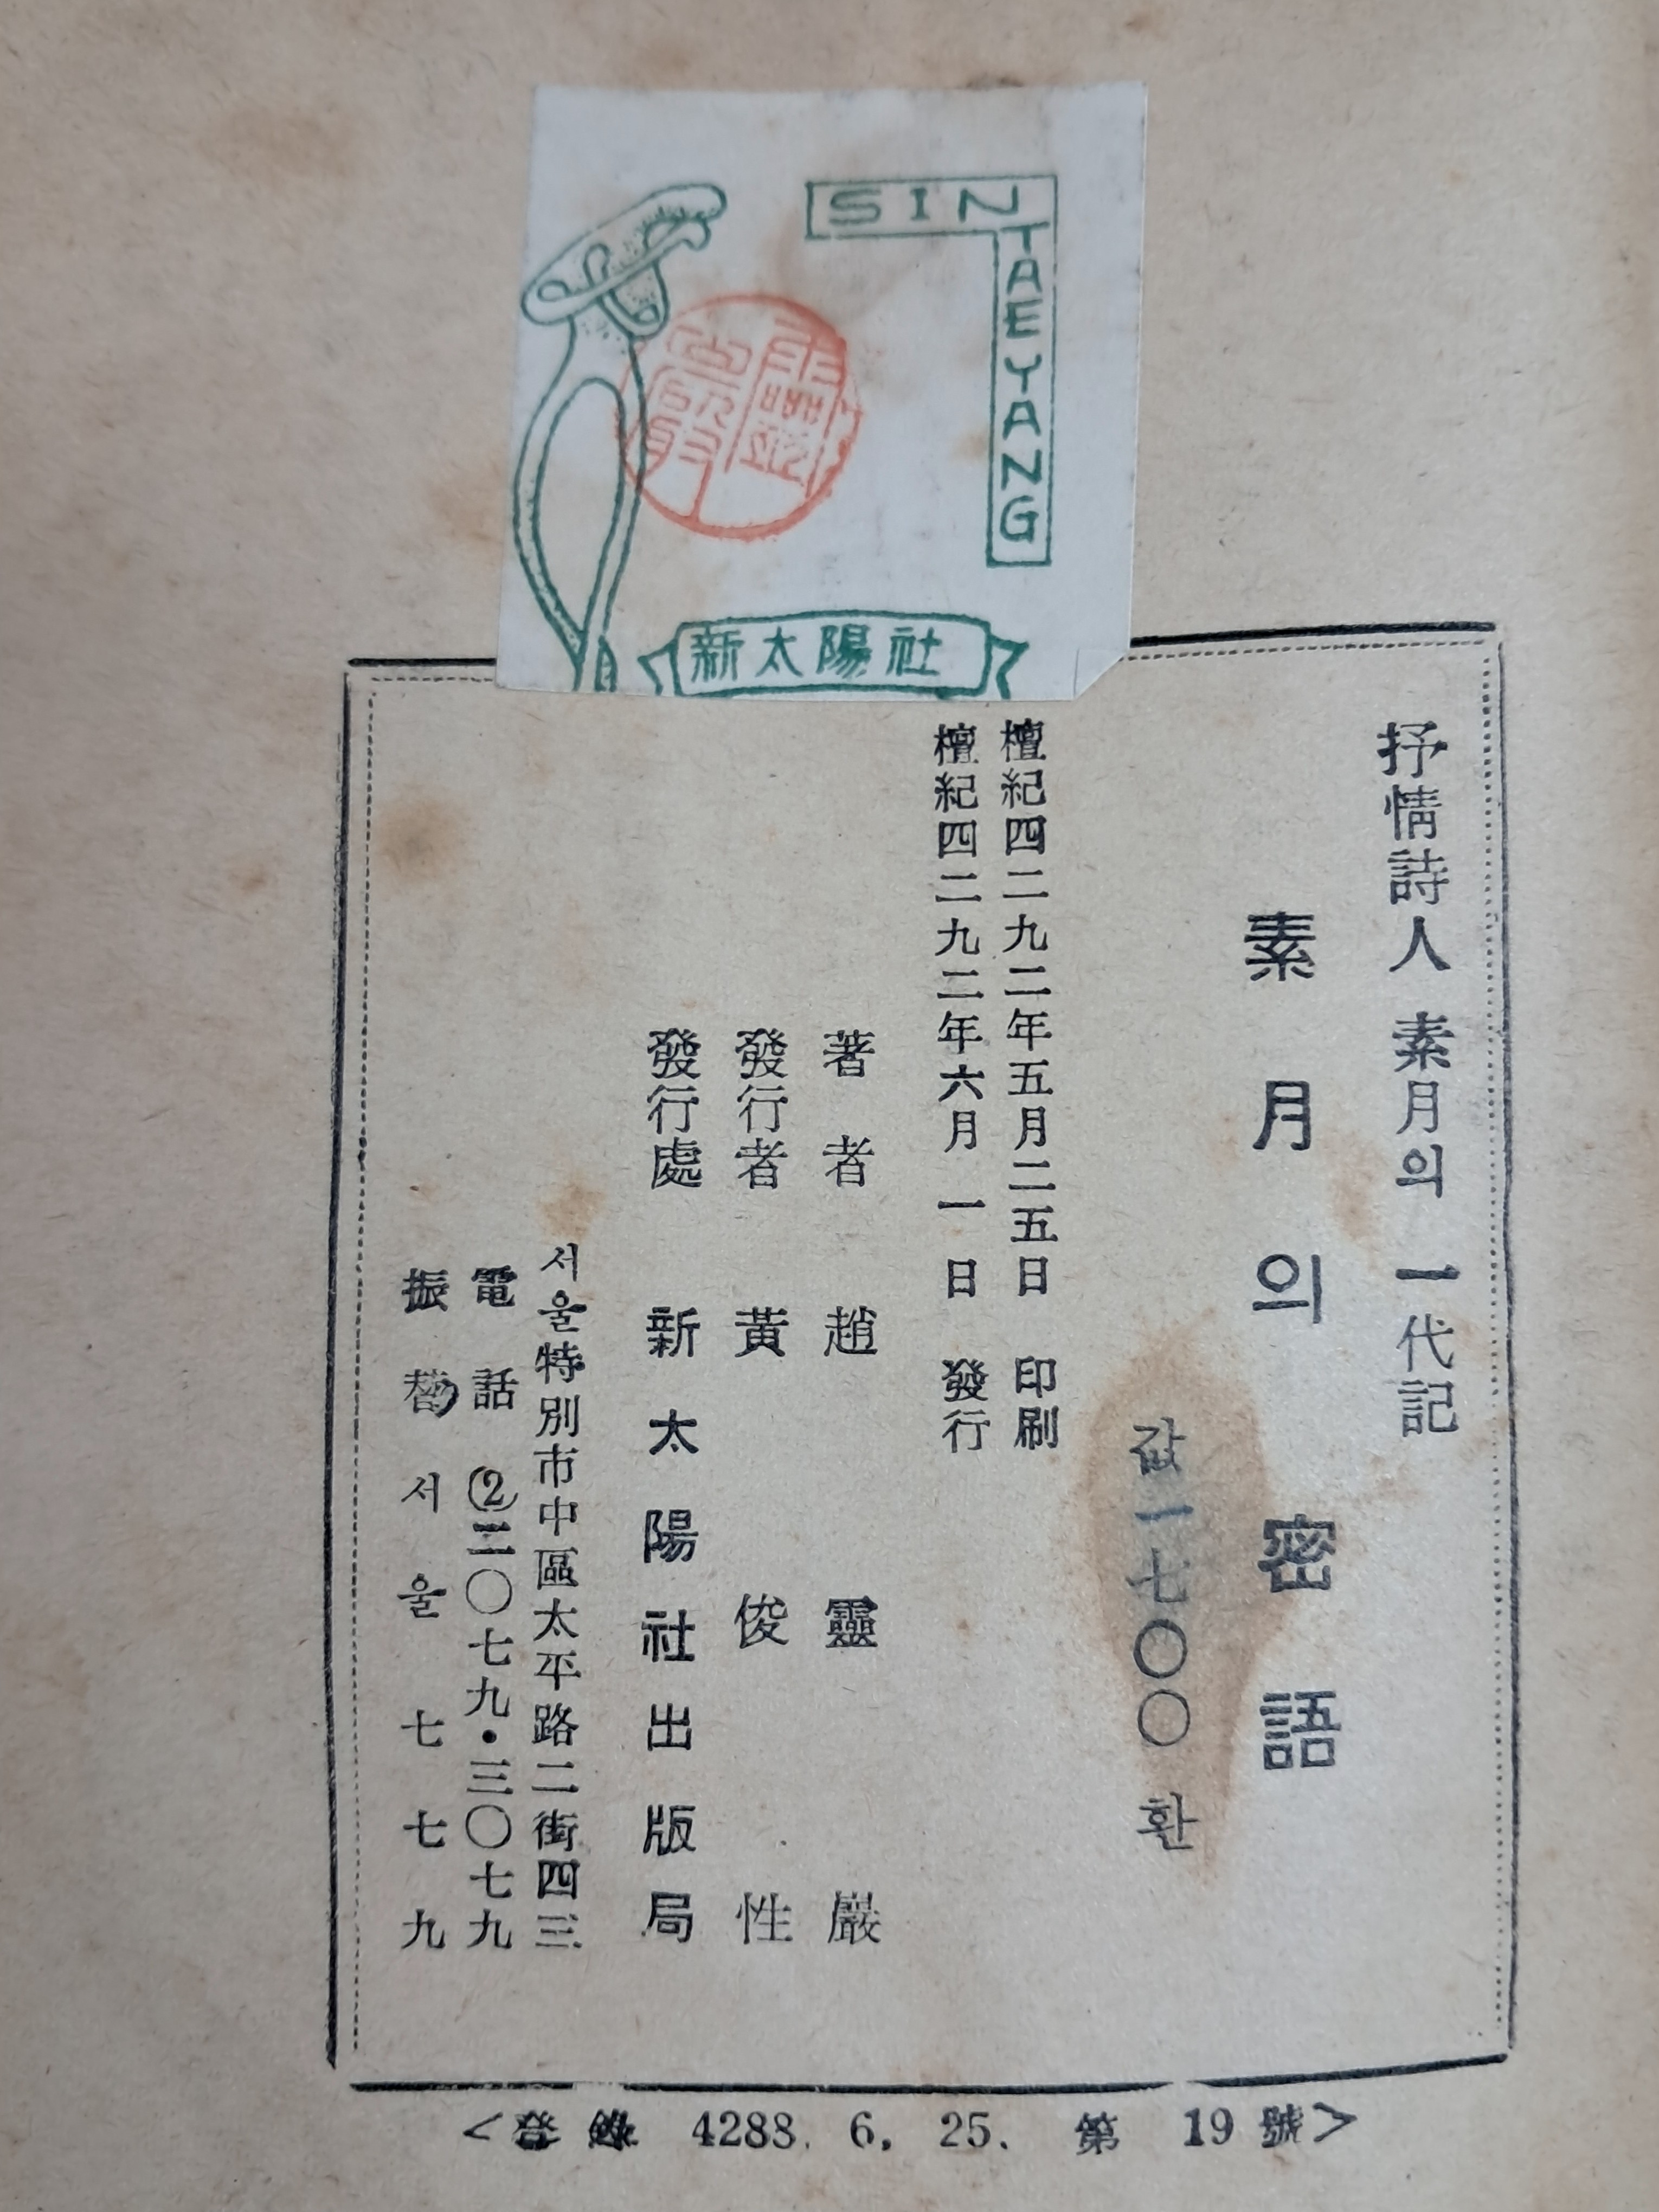 SIN
TAEYANG
新太陽社
抒情詩人 素月의 一代記
素月의 密語
값 一七〇〇 환
檀紀四二九二年五月二五日 印刷
檀紀四二九二年六月 一 日 發行
著者 趙靈巖
發行者 黃俊性
發行處 新太陽社出版局
서울特別市中區太平路二街四三
電話 (2)二〇七九・三〇七九
振替 서울 七七九
<登錄 4288. 6. 25. 第 19 號>